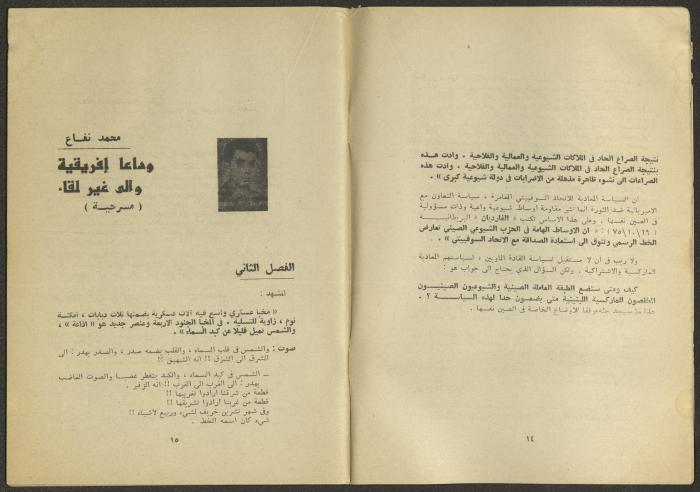 نتيجة الصراع الحاد في الملاكات الشيوعية والعمالية والفلاحية . وأدت هذه
بنتيجة الصراع الحاد في الملاكات الشيوعية والعمالية والفلاحية . وأدت هذه
الصراعات الى نشوء ظاهرة مذهلة من الاضرابات في دولة شيوعية كبرى » .
ان السياسة المعادية للاتحاد السوفييتي المغامرة ، سياسة التعاون مع
الامبريالية ضد الثورة انما تثير مقاومة أوساط شيوعية واعية وذات مسؤولية
في الصين نفسها . وعلى هذا الاساس تكتب « الغارديان » البريطانية
( ٧٥/١٠/٢٩ ) : « ان الاوساط الهامة في الحزب الشيوعي الصيني تعارض
الخط الرسمي وتتوق الى استعادة الصداقة مع الاتحاد السوفييتي » .
ولا ريب في أن لا مستقبل لسياسة القادة الماويين ، لسياستهم المعادية
للماركسية والاشتراكية . ولكن السؤال الذي يحتاج الى جواب هو :
كيف ومتى ستضع الطبقة العاملة الصينية والشيوعيون الصينيون
المخلصون الماركسية اللينينية متى يضعون حدا لهذه السياسة ؟ .
هذا ما سيحدد حله وفقا الأوضاع الخاصة في الصين نفسها .
١٤
محمد نفاع
وداعا إفريقية
والى غير لقاء
( مسرحية )
الفصل الثاني
المشهد :
« مخبأ عسكري واسع فيه آلات عسكرية بضمنها ثلاث دبابات ، أمكنة
نوم ، زاوية للتسلية . في المخبأ الجنود الاربعة وعنصر جديد هو « اذاعة » ،
والشمس تميل قليلا عن كبد السماء » .
صوت : والشمس في قلب السماء ، والقلب يضمه صدر ، والصدر يهدر : الى
الشرق الى الشرق !! انه الشهيق !!
ــ الشمس في كبد السماء ، والكبد يتفطر غضبا والصوت الغاضب
يهدر : الى الغرب الى الغرب !! انه الزفير .
قطعة من شرقنا أرادوا تغريبها !!
قطعة من غربنا أرادوا تشريقها !!
وفي شهر تشرين خريف لشيء وربيع لأشياء !!
شيء كان اسمه الخط .
١٥